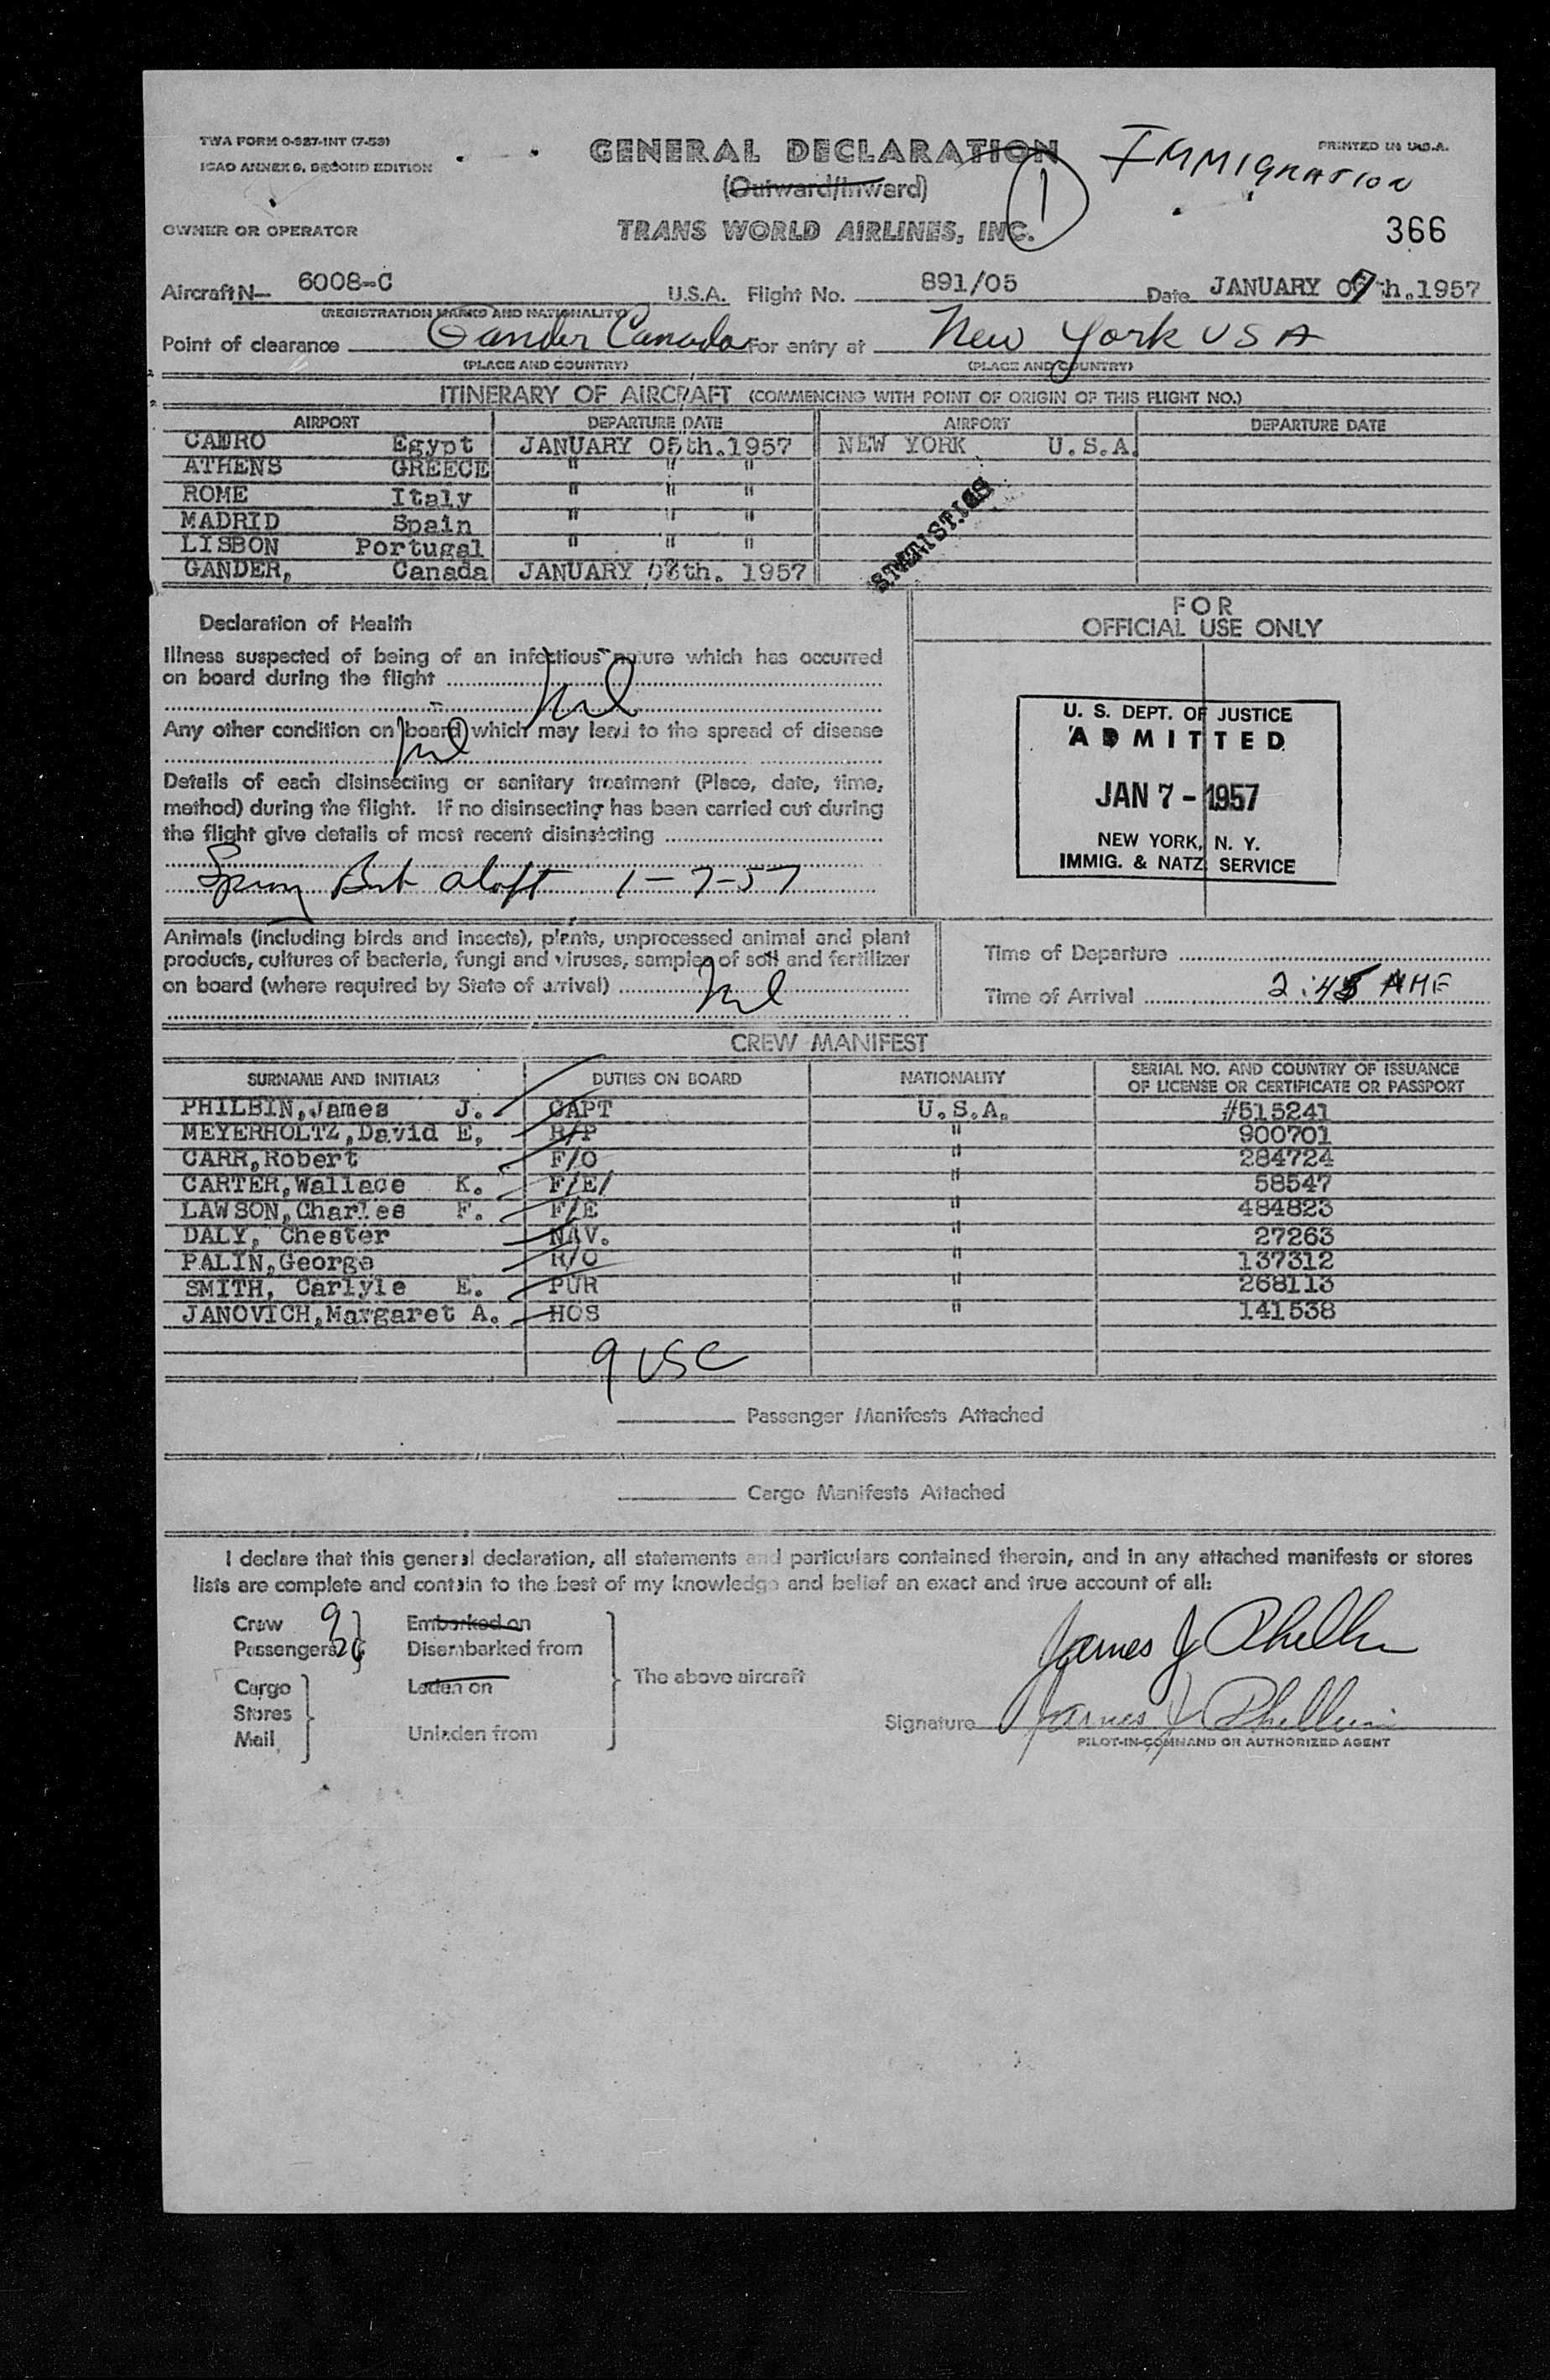 TWA FORM 0-927-INT (7-53)
ICAO ANNEX 9, SECOND EDITION
GENERAL DECLARATION
(Outward/Inward)
TRANS WORLD AIRLINES, INC.
1
IMMIGRATION
PRINTED IN U.S.A.
366
OWNER OR OPERATOR
Aircraft N- 6008-C U.S.A. Flight No. 891/05 Date JANUARY 07th.1957
(REGISTRATION MARKS AND NATIONALITY)
Point of clearance Gander Canada For entry at New York USA
(PLACE AND COUNTRY) (PLACE AND COUNTRY)
ITINERARY OF AIRCRAFT (COMMENCING WITH POINT OF ORIGIN OF THIS FLIGHT NO.)
AIRPORT DEPARTURE DATE AIRPORT DEPARTURE DATE
CAIRO Egypt JANUARY 05th.1957 NEW YORK U.S.A.
ATHENS GREECE " " "
ROME Italy " " "
MADRID Spain " " "
LISBON Portugal " " "
GANDER, Canada JANUARY th. 1957
STATISTICS
Declaration of Health
Illness suspected of being of an infectious nature which has occurred
on board during the flight
Nil
Any other condition on board which may lead to the spread of disease
Nil
Details of each disinsecting or sanitary treatment (Place, date, time,
method) during the flight. If no disinsecting has been carried out during
the flight give details of most recent disinsecting
Spray Bomb aloft 1-7-57
FOR
OFFICIAL USE ONLY
U. S. DEPT. OF JUSTICE
ADMITTED
JAN 7 - 1957
NEW YORK, N. Y.
IMMIG. & NATZ. SERVICE
Animals (including birds and insects), plants, unprocessed animal and plant
products, cultures of bacteria, fungi and viruses, samples of soil and fertilizer
on board (where required by State of arrival) Nil
Time of Departure
Time of Arrival 2:45 AM
CREW MANIFEST
SURNAME AND INITIALS DUTIES ON BOARD NATIONALITY SERIAL NO. AND COUNTRY OF ISSUANCE
OF LICENSE OR CERTIFICATE OR PASSPORT
PHILBIN,James J. CAPT U.S.A. #515241
MEYERHOLTZ,David E, R/P " 900701
CARR,Robert F/O " 284724
CARTER,Wallace K. F/E/ " 58547
LAWSON,Charles F. F/E " 484823
DALY, Chester NAV. " 27263
PALIN,George R/O " 137312
SMITH, Carlyle E. PUR " 268113
JANOVICH,Margaret A. HOS " 141538
9 USC
Passenger Manifests Attached
Cargo Manifests Attached
I declare that this general declaration, all statements and particulars contained therein, and in any attached manifests or stores
lists are complete and contain to the best of my knowledge and belief an exact and true account of all:
Crew 9 Embarked on
Passengers Disembarked from
Cargo Laden on
Stores
Mail Unladen from
The above aircraft
James J Philbin
Signature James J Philbin
PILOT-IN-COMMAND OR AUTHORIZED AGENT